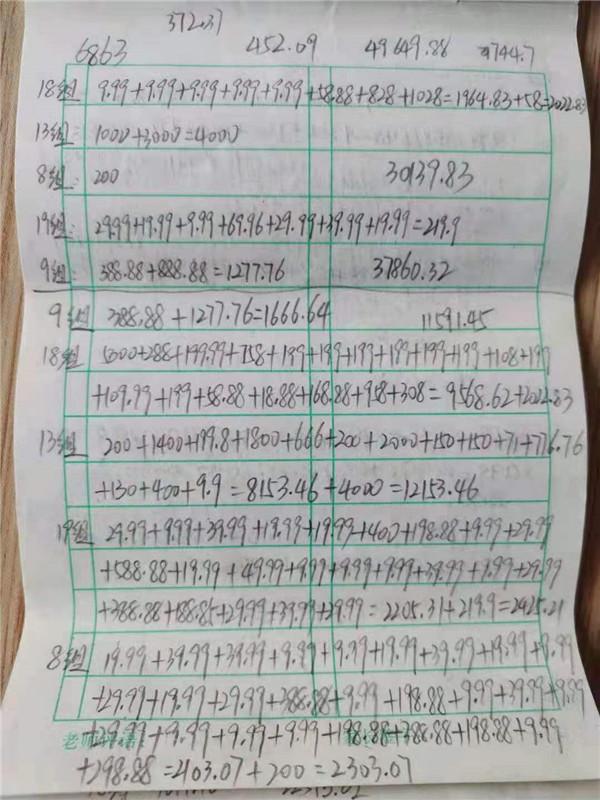 372.37
6863 452.09 49649.88 9744.7
18组 9.99+9.99+9.99+9.99+9.99+58.88+828+1028=1964.83+58=2022.83
13组 1000+3000=4000
8组: 200 30139.83
19组: 29.99+19.99+9.99+69.96+29.99+39.99+19.99=219.9
9组: 388.88+888.88=1277.76 37860.32
9组 388.88+1277.76=1666.64 11591.45
18组 5300+288+199.99+758+199+199+199+199+199+199+108+199
+109.99+199+58.88+18.88+168.88+958+308=9568.62+2022.83
13组 200+1400+199.8+1800+666+200+2000+150+150+71+776.76
+130+400+9.9=8153.46+4000=12153.46
19组 29.99+9.99+39.99+19.99+19.99+400+198.88+9.99+29.99
+588.88+19.99+49.99+9.99+9.99+9.99+39.99+9.99+29.99
+388.88+188.85+29.99+39.99+29.99=2205.31+219.9=2425.21
8组 19.99+39.99+39.99+9.99+9.99+19.99+39.99+19.99+9.99
+29.99+19.99+29.99+388.88+9.99+198.88+9.99+39.99+9.99
+29.99+9.99+9.99+9.99+198.88+388.88+198.88+9.99
+298.88=2103.07+200=2303.07